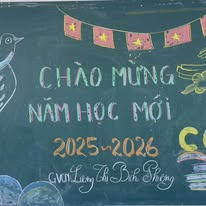 CHÀO MỪNG
NĂM HỌC MỚI
2025~2026
GVCN Lương Thị Bích Phượng